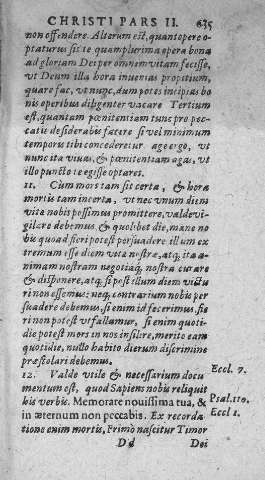 CHRISTI PARS II. 635
non ossendere. Alterum est, quantopere o-
ptaturus sis te quamplurima opera bona
ad gloriam Dei per omnem vitam fecisse,
vt Deum illa hora inuenias propitium,
quare fac, vt nunc, dum potes incipias bo-
nis operibus diligenter vacare. Tertium
est, quantam pœnitentiam tunc pro pec-
catis desiderabis facere si vel minimum
temporis tibi concederetur age ergo, vt
nunc ita viuas, & pœnitentiam agas, vt
illo puncto te egisse optares.
11. Cum mors tam sit certa, & hora
mortis tam incerta, vt nec vnum diem
vitæ nobis possimus promittere, valde vi-
gilare debemus, & quolibet die, mane no-
bis quoad fieri potest persuadere illum ex-
tremum esse diem vitæ nostræ, atq; ita a-
nimam nostram negotiaq́; nostra curare
& disponere, atq; si post illum diem victu
ri non essemus: neq; contrarium nobis per
suadere debemus, si enim id fecerimus, fie
ri non potest vt fallamur, si enim quoti-
die potest mors in nos insilire, merito eam
quotidie, nullo habito dierum discrimine
præstolari debemus.
12. Valde vtile & necessarium docu Eccl. 7.
mentum est, quod Sapiens nobis reliquit
his verbis. Memorare nouissima tua, & Psal. 110.
in æternum non peccabis. Ex recorda Eccl 1.
tione enim mortis, Primò nascitur Timor
D d Dei